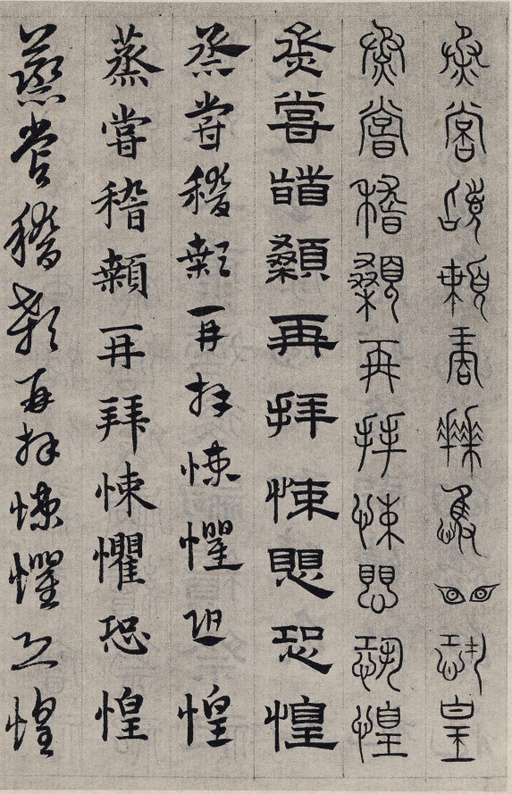 烝嘗稽顙再拜悚䀠恐皇
烝嘗稽顙再拜悚愳恐惶
烝嘗䭫顙再拜悚愳恐惶
烝嘗稽顙再拜悚懼恐惶
蒸嘗稽顙再拜悚懼恐惶
蒸嘗稽顙再拜悚懼恐惶